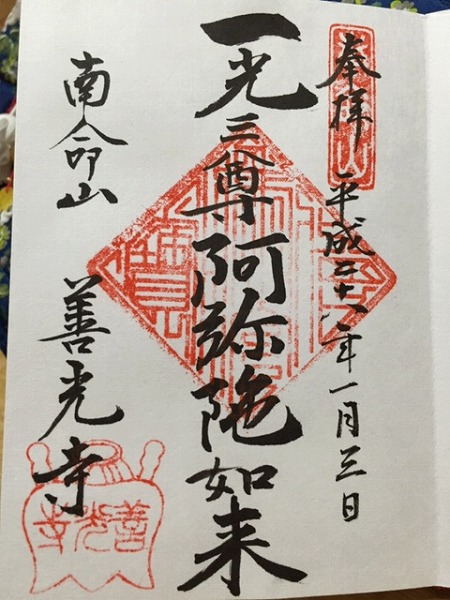 奉拝 平成二十八年一月三日
一光三尊阿弥陀如来
南命山 善光寺
善光寺